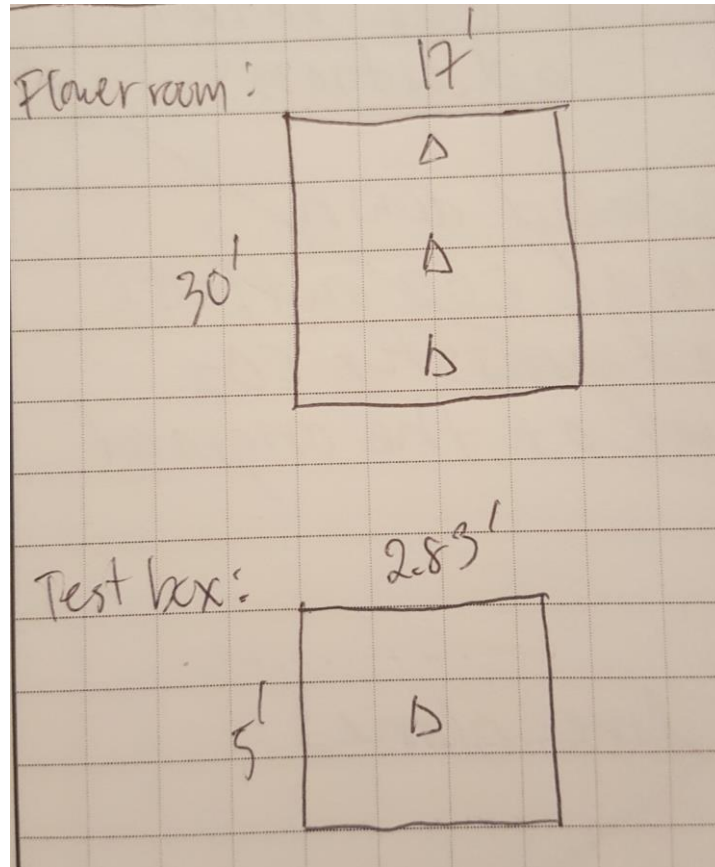 Flower room:
17'
30'
Test box:
2.83'
5'